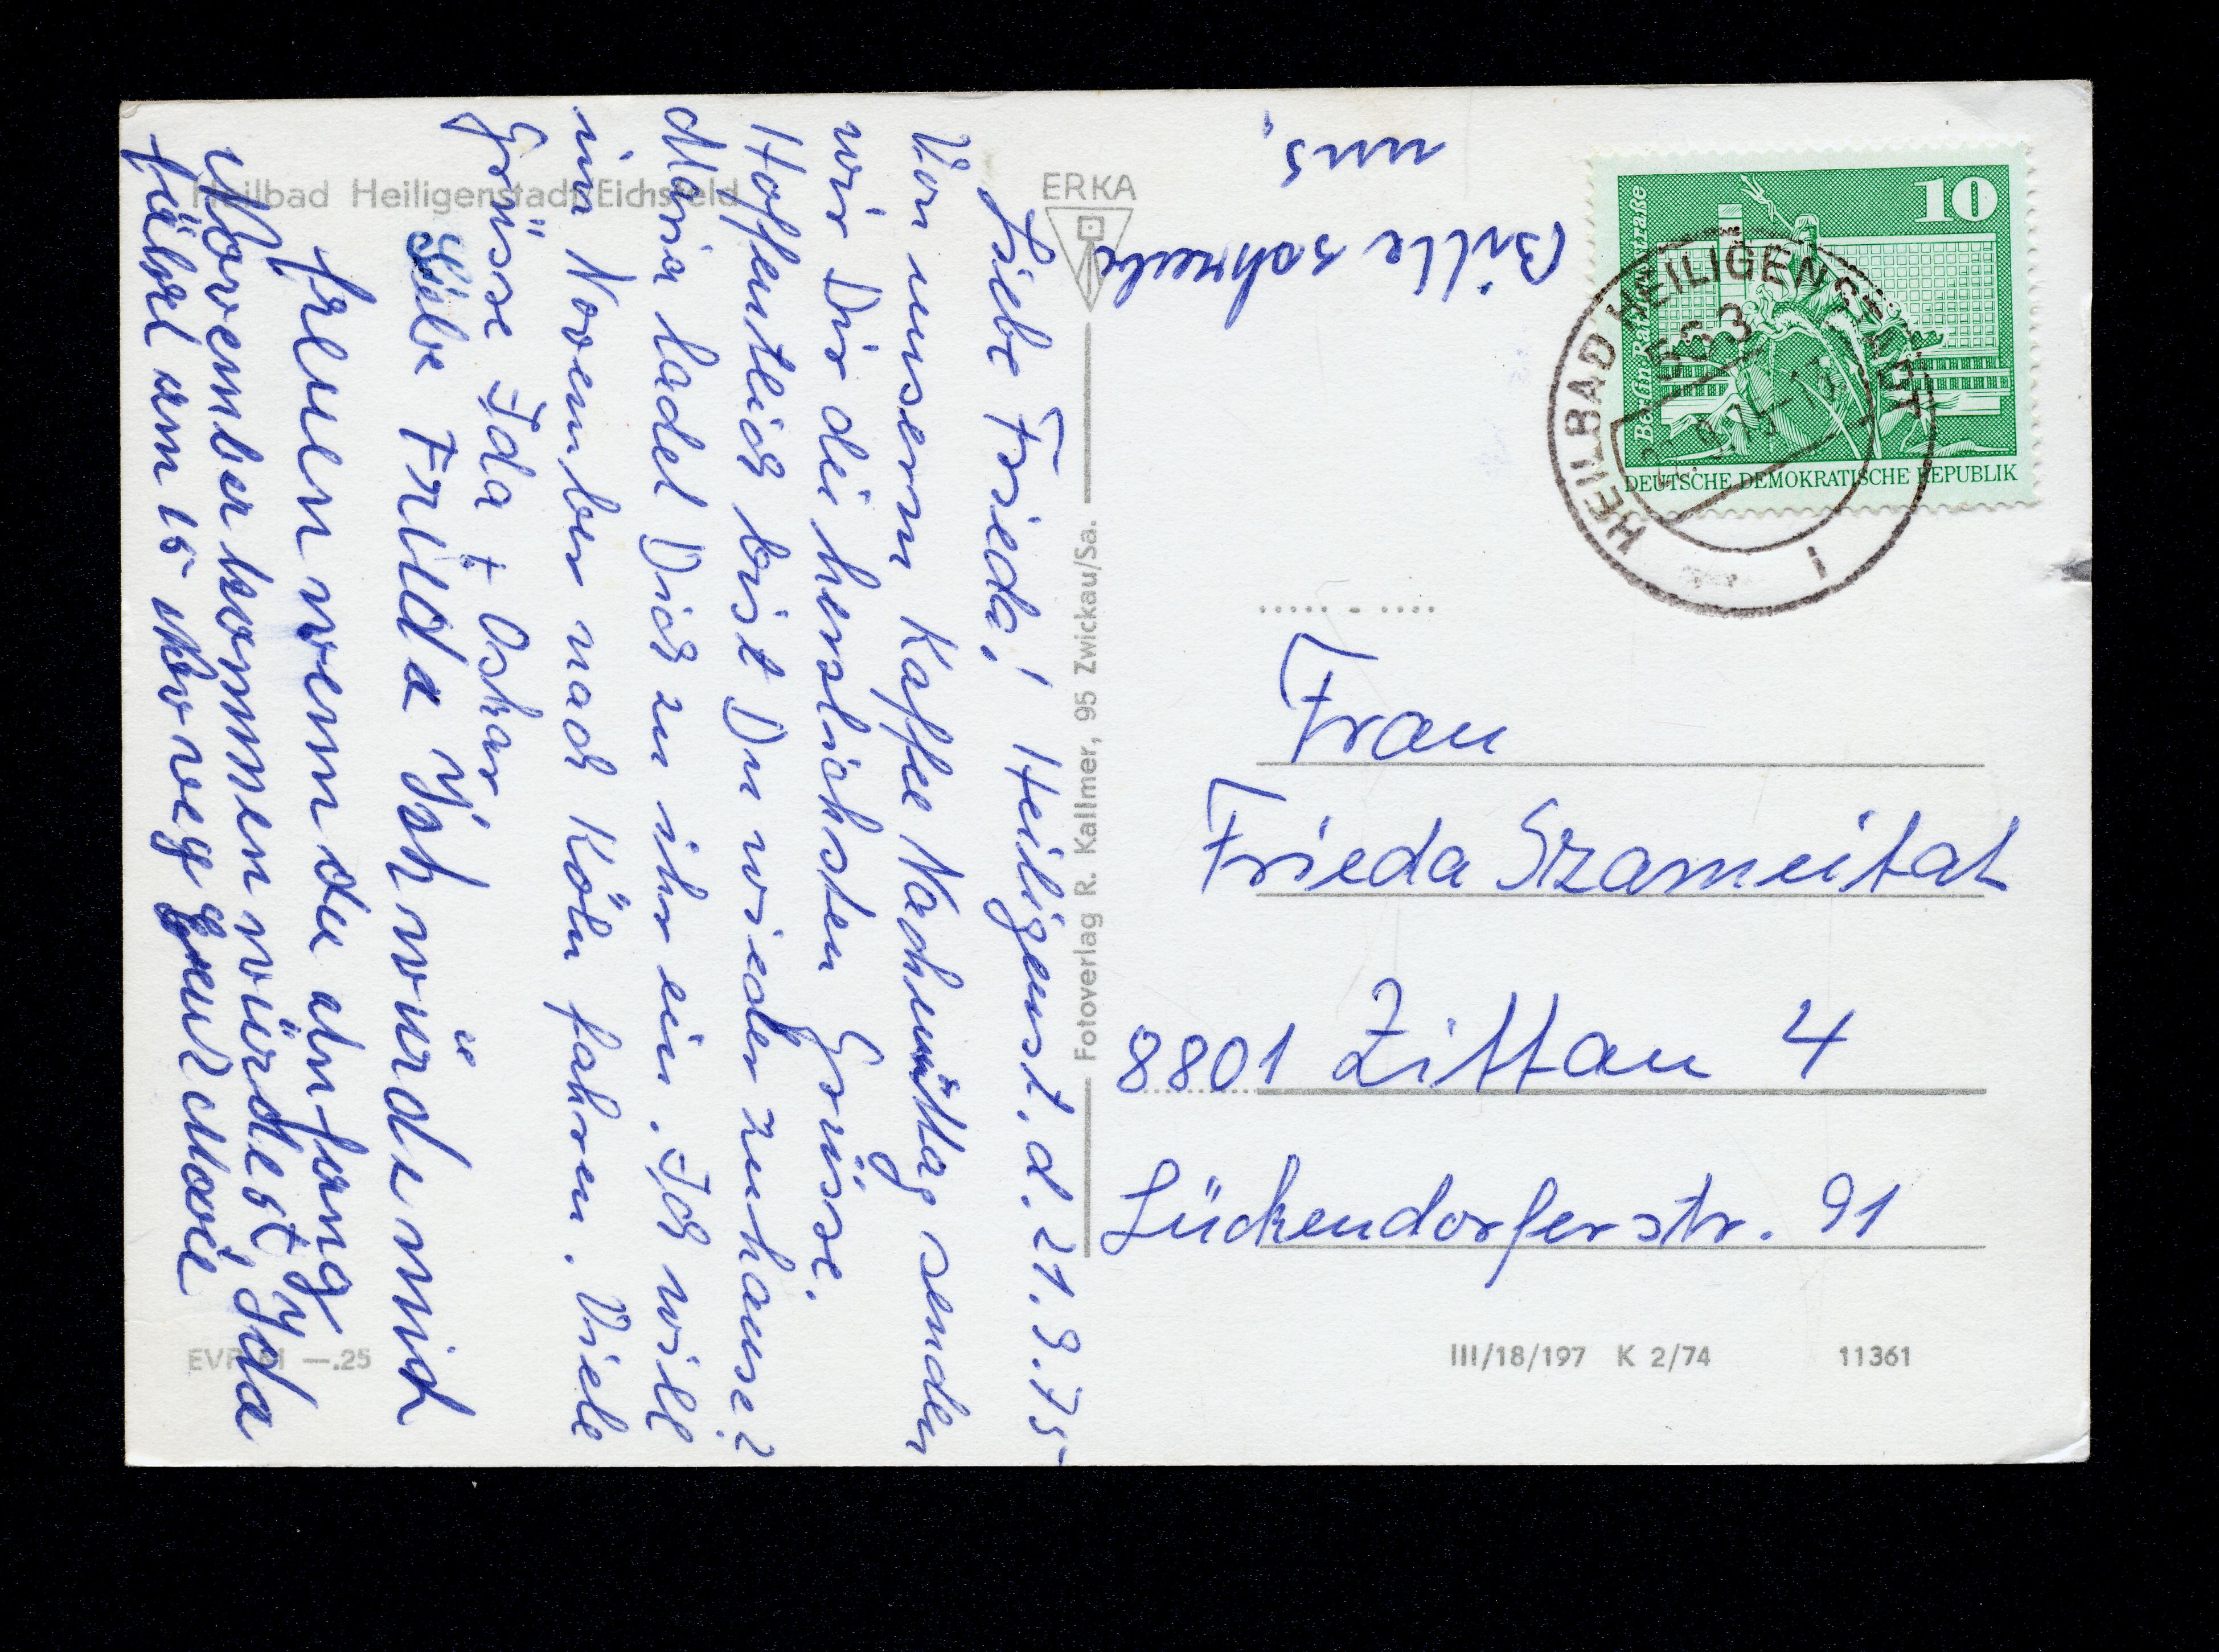 Heilbad Heiligenstadt/Eichsfeld
Liebe Frieda! Heiligenst. d. 21.9.75
Von unserm Kaffee Nachmittag senden
wir Dir die herslichsten Grüsse.
Hoffentlich bist Du wieder zuhause?
Maria ladet Dich zu ihr ein. Ich will
im November nach Köln fahren. Viele
Grüsse Ida + Oskar
Liebe Frieda Ich würde mich
freuen wenn du anfang
November kommen würdest, Ida
fährt am 15 Nov weg
Bitte schreibe
uns,
ERKA
Fotoverlag R. Kallmer, 95 Zwickau/Sa.
10
Berlin Rathausstraße
DEUTSCHE DEMOKRATISCHE REPUBLIK
HEILBAD HEILIGENSTADT
563
1
Frau
Frieda Szameitat
8801 Zittau 4
Lückendorferstr. 91
EVP M —.25
III/18/197 K 2/74 11361